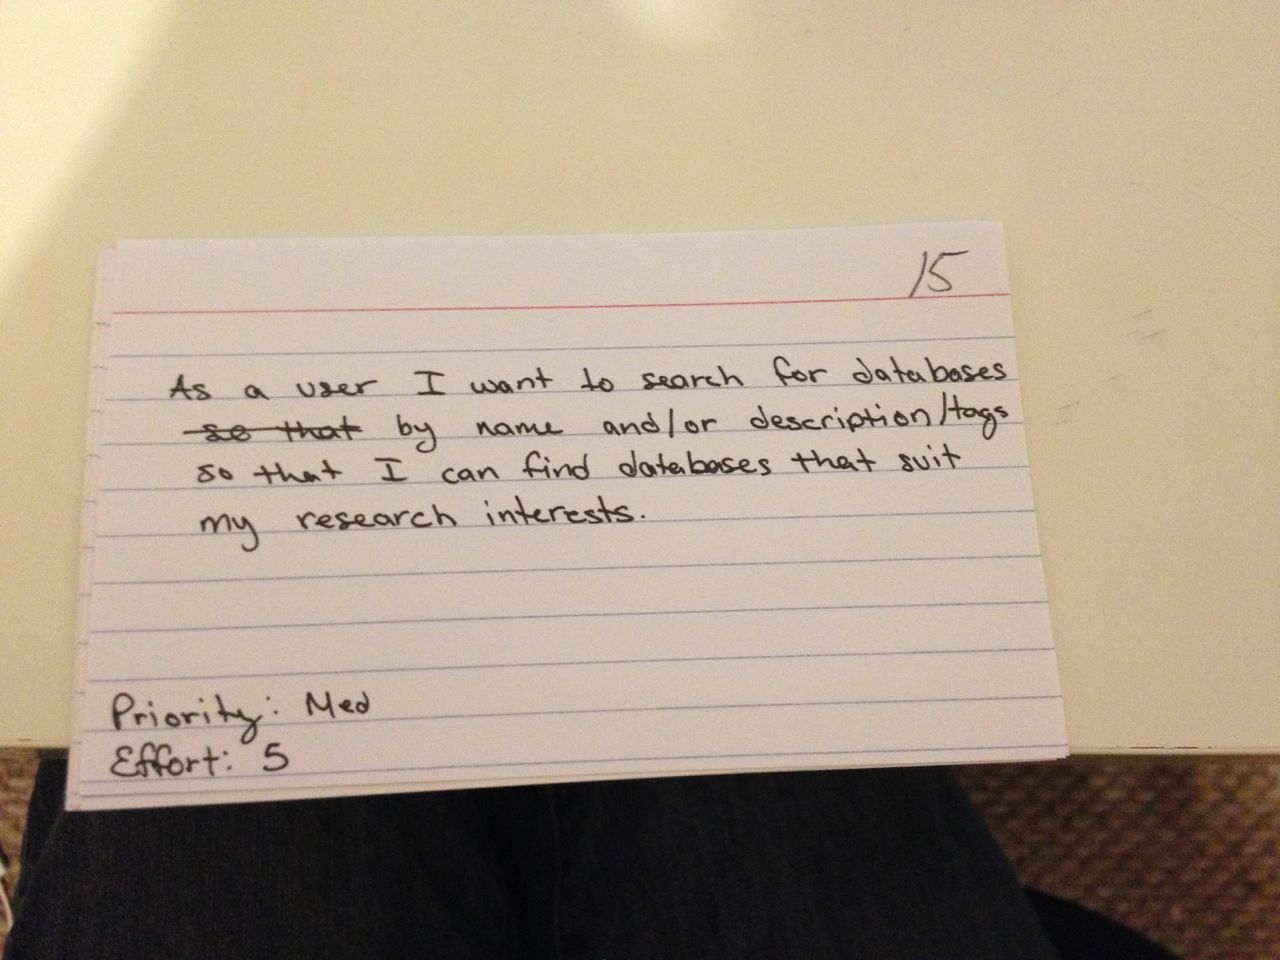 15
As a user I want to search for databases
so that by name and/or description/tags
so that I can find databases that suit
my research interests.
Priority: Med
Effort: 5